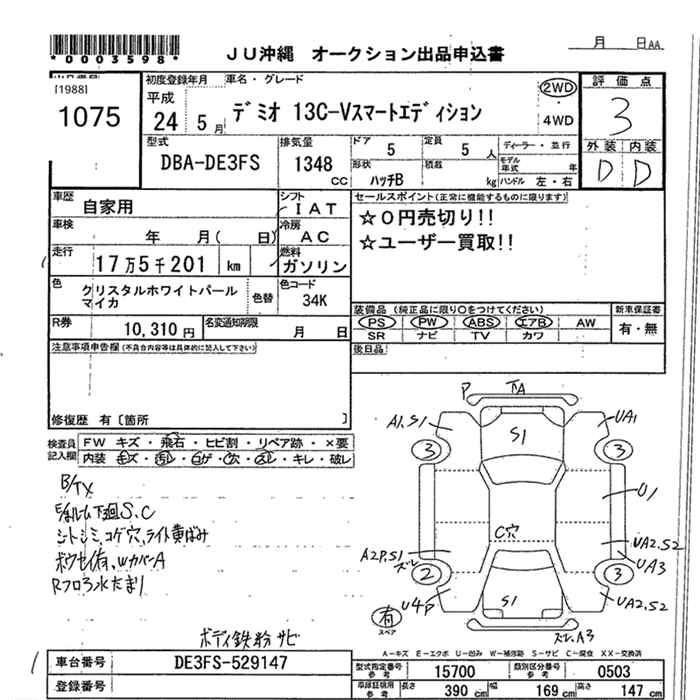 *0003598*
JU沖縄 オークション出品申込書
月 日AA
[1988]
1075
初度登録年月
平成
24 5月
車名・グレード
デミオ 13C-Vスマートエディション
2WD
4WD
評価点
3
型式
DBA-DE3FS
排気量
1348
CC
ドア
5
定員
5 人
形状
ハッチB
積載
kg
ディーラー・並行
モデル年式 年
ハンドル 左・右
外装 内装
D D
車歴
自家用
シフト
IAT
車検
年 月( 日)
冷房
AC
走行
17万5千201 km
燃料
ガソリン
色
クリスタルホワイトパール
マイカ
色替
色コード
34K
R券
10,310 円
名変通知期限
月 日
セールスポイント(正常に機能するものに限ります)
☆0円売切り!!
☆ユーザー買取!!
装備品 (純正品に限り○をつけてください)
PS PW ABS エアB AW
SR ナビ TV カワ
新車保証書
有・無
後日品
注意事項申告欄(不具合内容等は具体的に記入して下さい)
修復歴 有〔箇所 〕
検査員
記入欄
FW キズ・飛石・ヒビ割・リペア跡・×要
内装
キレ・破レ
B/Tx
下廻S.C
シートシミ,コゲ穴,ライト黄ばみ
Rフロア水たまり
ボディ鉄粉サビ
P
A1,S1
S1
UA1
3
3
U1
C穴
A2P,S1
ズレ
UA2.S2
UA3
2
3
U4P
S1
UA2.S2
有
スペア
ズレ.A3
A-キズ E-エクボ U-凹み W-補修跡 S-サビ C-腐食 XX-交換済
車台番号
DE3FS-529147
登録番号
型式指定番号
参考
15700
類別区分番号
参考
0503
参考
長さ
390 cm
幅
169 cm
高さ
147 cm